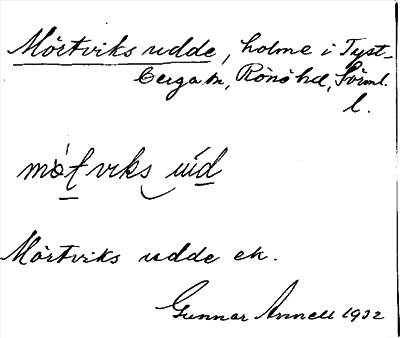 Mörtviks udde, holme i Tyst-
berga sn, Rönö hd, Sörml.
l.
mö́tviks úd
Mörtviks udde ek.
Gunnar Annell 1932